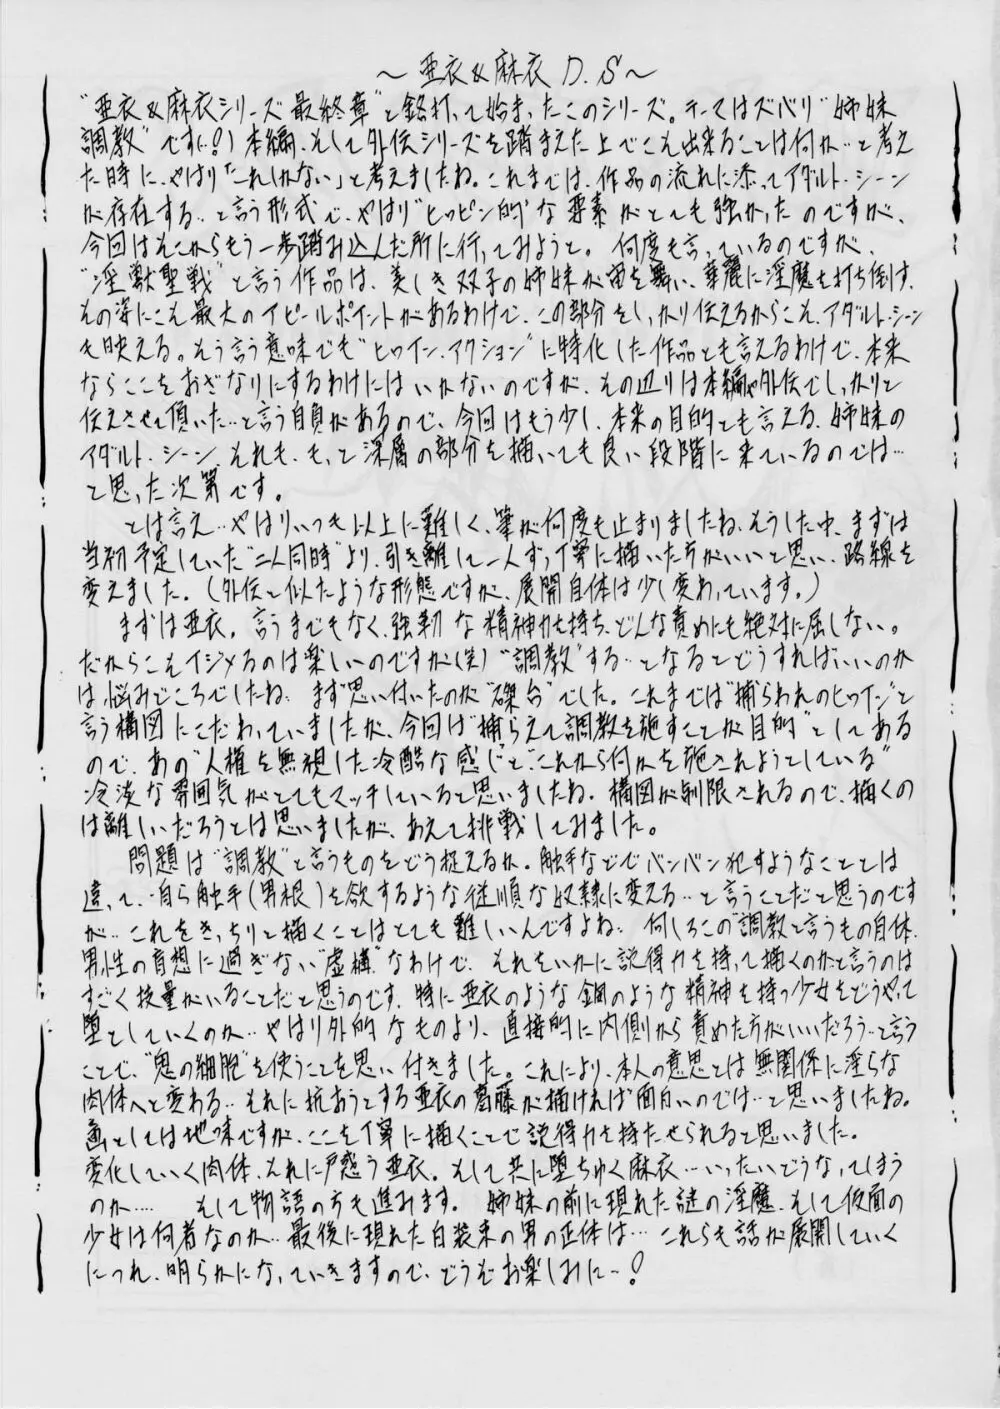 ～亜衣&麻衣 D.S～
"亜衣&麻衣シリーズ最終章"と銘打って始まったこのシリーズ。テーマはズバリ"姉妹
調教"です(!?)本編、そして外伝シリーズを踏まえた上でこそ出来ることは何か…と考え
た時に、やはり「これしかない」と考えましたね。これまでは、作品の流れに添ってアダルト・シーン
が存在する…と言う形式で、やはり"ヒロピン的"な要素がとても強かったのですが、
今回はそこからもう一歩踏み込んだ所に行ってみようと。何度も言っているのですが、
"淫獣聖戦"と言う作品は、美しき双子の姉妹が宙を舞い、華麗に淫魔を打ち倒す、
その姿にこそ最大のアピールポイントがあるわけで、この部分をしっかり伝えるからこそ、アダルト・シーン
も映える。そう言う意味でも"ヒロイン・アクション"に特化した作品とも言えるわけで、本来
ならここをおざなりにするわけにはいかないのですが、その辺りは本編や外伝でしっかりと
伝えさせて頂いた…と言う自負があるので、今回はもう少し、本来の目的とも言える、姉妹の
アダルト・シーン、それも、もっと深層の部分を描いても良い段階に来ているのでは…
と思った次第です。
とは言え…やはりいつも以上に難しく、筆が何度も止まりましたね、そうした中、まずは
当初予定していた"二人同時"より、引き離して一人ずつ丁寧に描いた方がいいと思い、路線を
変えました。(外伝と似たような形態ですが、展開自体は少し変わっています。)
まずは亜衣。言うまでもなく、強靭な精神力を持ち、どんな責めにも絶対に屈しない。
だからこそイジメるのは楽しいのですが(笑)"調教"する…となるとどうすればいいのか
は悩みどころでしたね。まず思い付いたのが"磔台"でした。これまでは"捕らわれのヒロイン"と
言う構図にこだわっていましたが、今回は"捕らえて調教を施すことが目的"としてある
ので、あの"人権を無視した冷酷な感じ"と"これから何かを施されようとしている"
冷淡な雰囲気がとてもマッチしていると思いましたね。構図が制限されるので、描くの
は難しいだろうとは思いましたが、あえて挑戦してみました。
問題は"調教"と言うものをどう捉えるか。触手などでバンバン犯すようなこととは
違って、自ら触手(男根)を欲するような従順な奴隷に変える…と言うことだと思うのです
が…これをきっちりと描くことはとても難しいんですよね。何しろこの"調教"と言うもの自体、
男性の盲想に過ぎない"虚構"なわけで、それをいかに説得力を持って描くのかと言うのは
すごく技量がいることだと思うのです。特に亜衣のような鋼のような精神を持つ少女をどうやって
堕としていくのか…やはり外的なものより、直接的に内側から責めた方がいいだろう…と言う
ことで、"鬼の細胞"を使うことを思い付きました。これにより、本人の意思とは無関係に淫らな
肉体へと変わる…それに抗おうとする亜衣の葛藤が描ければ面白いのでは…と思いましたね。
画としては地味ですが、ここを丁寧に描くことで説得力を持たせられると思いました。
変化していく肉体、それに戸惑う亜衣。そして共に堕ちゆく麻衣…いったいどうなってしまう
のか…… そして物語の方も進みます。姉妹の前に現れた謎の淫魔、そして仮面の
少女は何者なのか…最後に現れた白装束の男の正体は…これらも話が展開していく
につれ、明らかになっていきますので、どうぞお楽しみに～!